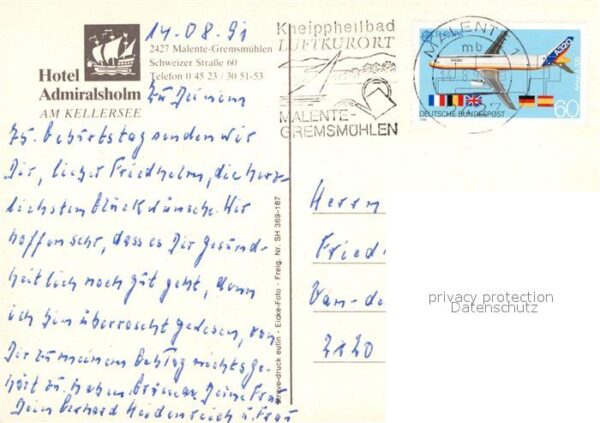 14.08.91
Hotel
Admiralsholm
AM KELLERSEE
2427 Malente-Gremsmühlen
Schweizer Straße 60
Telefon 0 45 23 / 30 51-53
Kneippheilbad
LUFTKURORT
MALENTE-
GREMSMÜHLEN
MALENTE 1
mb
2427
A320
Airbus A 320
60
DEUTSCHE BUNDESPOST
Zu Deinem
75. Geburtstag senden wir
Dir, lieber Friedhelm, die herz-
lichsten Glückwünsche. Wir
hoffen sehr, dass es Dir gesund-
heitlich noch gut geht, denn
ich bin überrascht gewesen, von
Dir zu meinem Gebtag nichts ge-
hört zu haben. Deine Frau
Dein Gerhard Heidenreich u. Frau
Herrn
Fried
Van-de
2120
Greve-druck eutin - Eicke-Foto - Freig. Nr. SH 369-187
privacy protection
Datenschutz